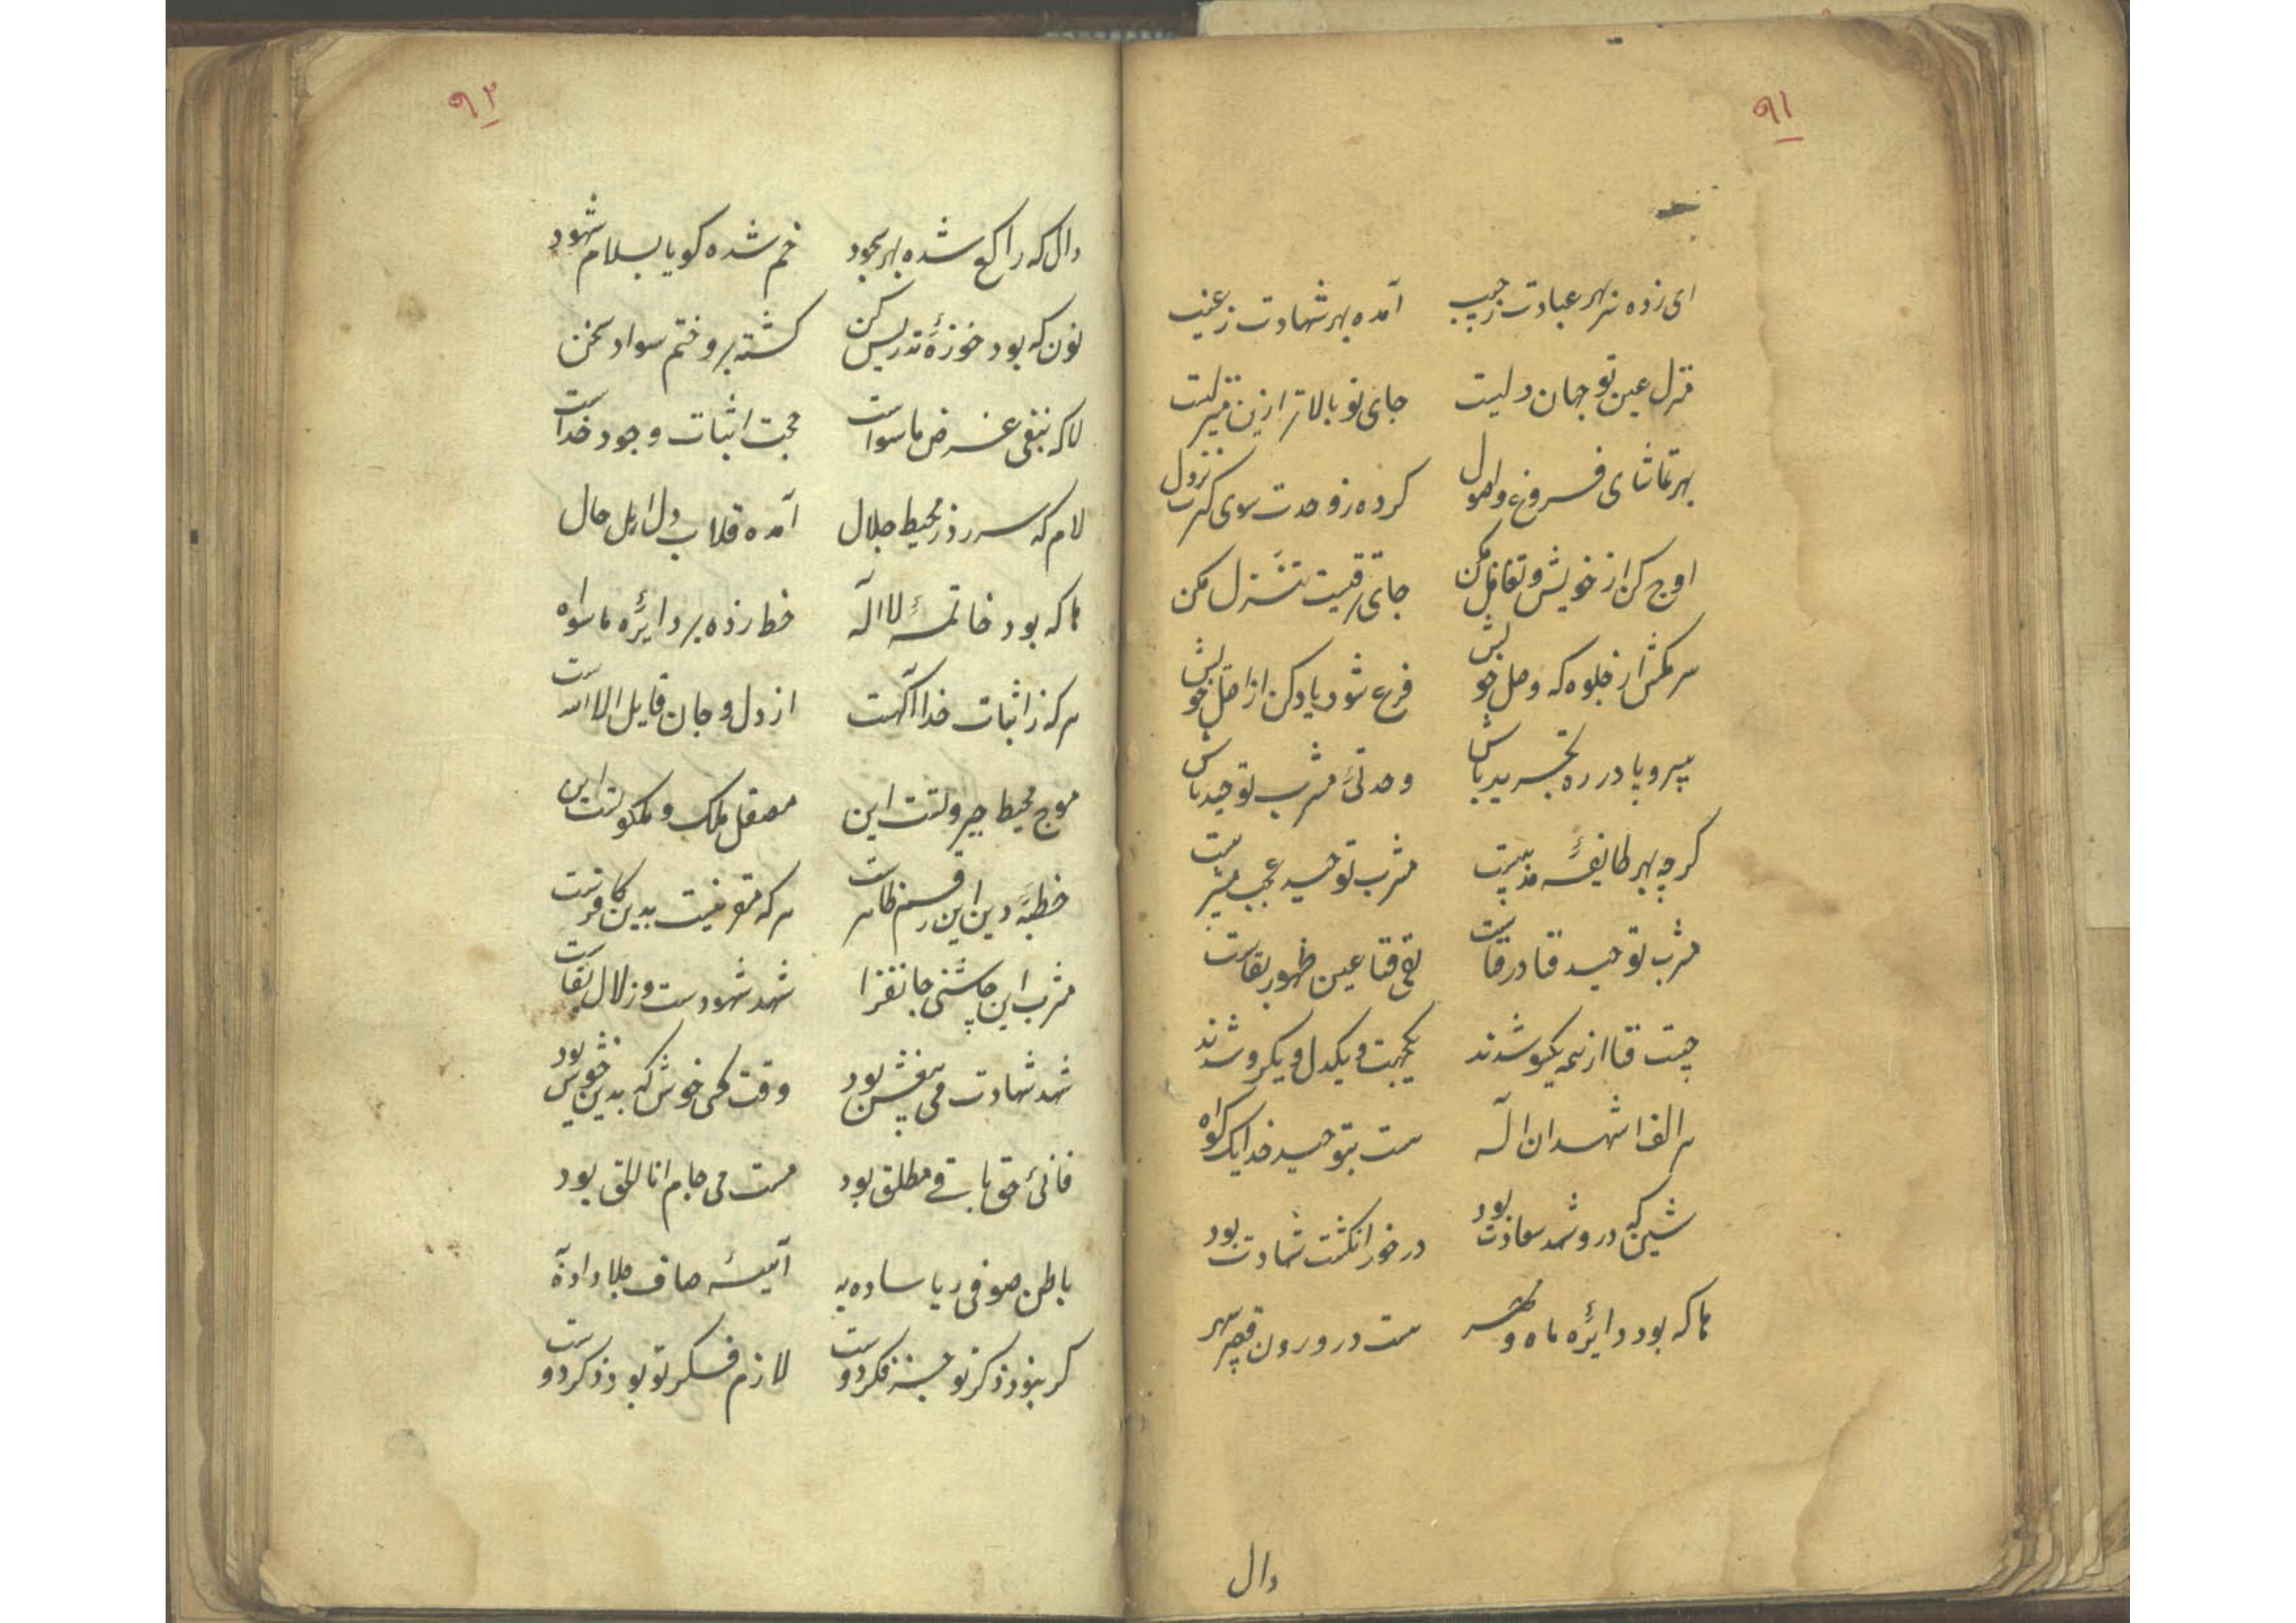 ۹۱
ای زده سر بهر عبادت ز جیب آمده بهر شهادت ز غیب
منزل عین تو جهان دلیست جای تو بالاتر ازین منزلیست
بهر تماشای فروع و اصول کرده ز وحدت سوی کثرت نزول
اوج کن از خویش و تغافل مکن جای رقیت تنزل مکن
سر مکش از جلوه که وصل خویش فرع شود یاد کن از اصل خویش
بیسر و پا در ره تجرید باش وحدتیٔ مشرب توحید باش
کرچه بهر طایفهٔ مذهبیست مشرب توحید عجب مشربیست
مشرب توحید فنا در فناست نفی فنا عین ظهور بقاست
چیست فنا از همه یکسو شدند یکجهت و یکدل و یکرو شدند
هر الف اشهد ان اله هست بتوحید خدا یک کواه
شین که درو شهد سعادت بود در خور انکشت شهادت بود
ها که بود دایرهٔ ماه و مهر هست درو رون قصر سپهر
دال
۹۲
دال که راکع شده بهر سجود خم شده کویا بسلام شهود
نون که بود خوزهٔ تدریس کن کشته برو ختم سواد سخن
لا که بنفی غرض ماسواست حجت اثبات وجود خداست
لام که سر زد ز محیط جلال آمده قلاب دل اهل حال
ها که بود خاتمهٔ لا اله خط زده بر دایرهٔ ماسواه
هر که ز اثبات خدا آکهست از دل و جان قایل الا الله است
موج محیط جبروتست این مصقل ملک و ملکوتست این
خطبهٔ دین این رقم ظاهرست هر که مقر نیست بدین کافرست
مشرب این چاشنی جانفزا شهد شهودست و زلال بقاست
شهد شهادت می بیغش بود وقت کسی خوش که بدین خوش بود
فانیٔ حق باقی مطلق بود مست می جام انا الحق بود
باطن صوفی ریا ساده به آئینهٔ صاف جلا داده به
کر نبود ذکر تو جز فکر دوست لازم فکر تو بود ذکر دوست